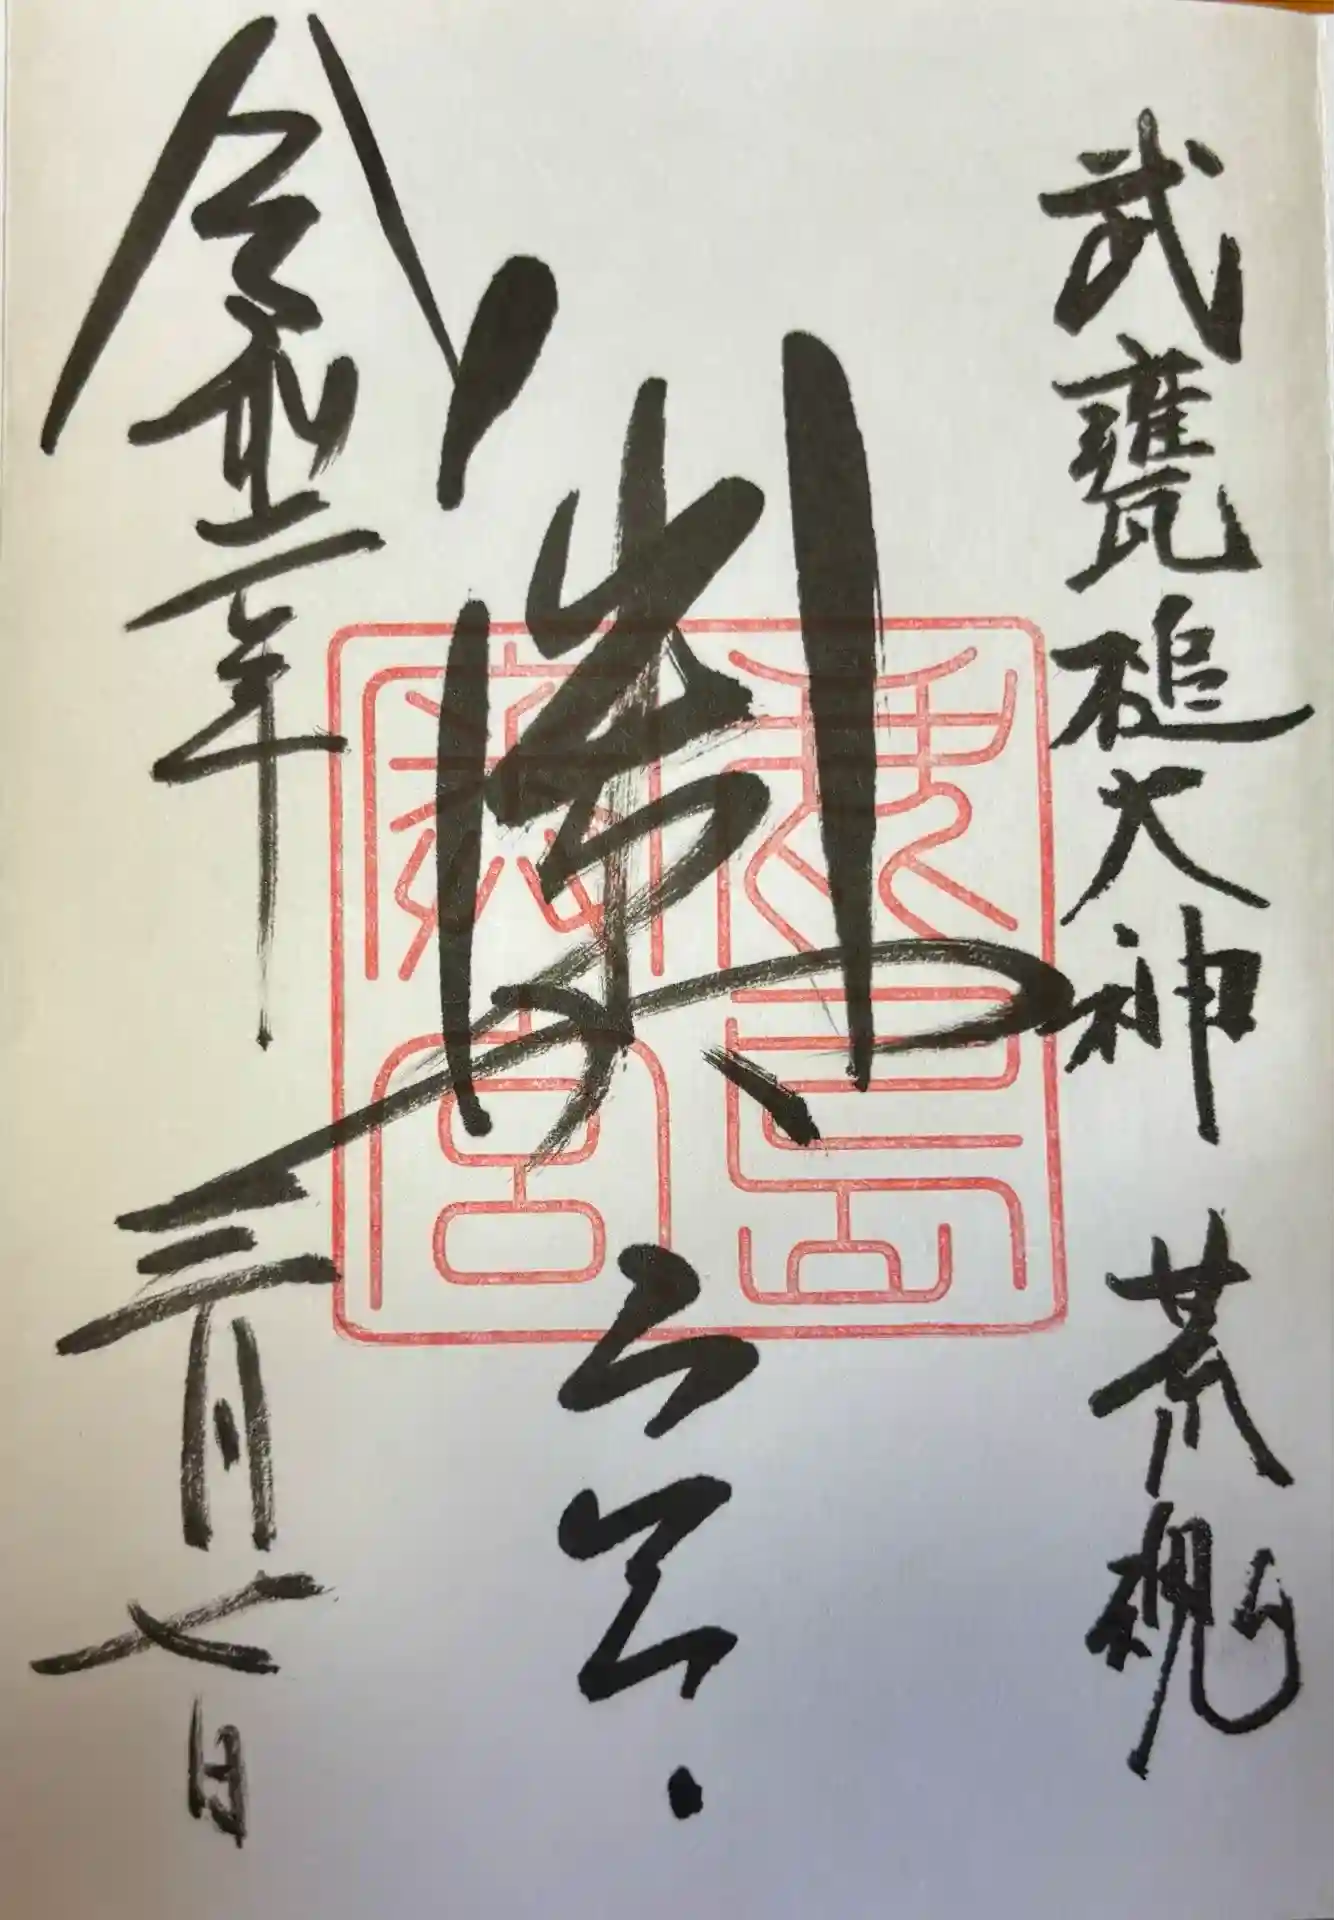 武甕槌大神 荒魂
奥宮
令和二年三月七日
鹿島
奥宮